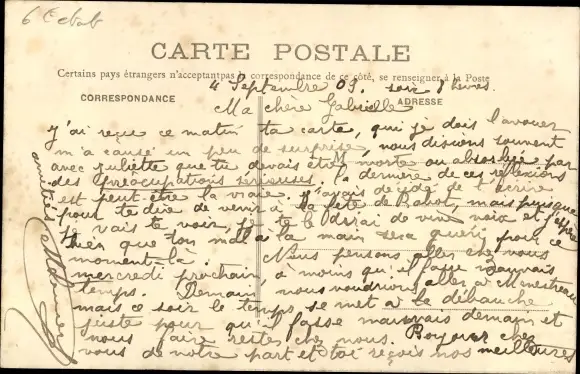 6
CARTE POSTALE
Certains pays étrangers n'acceptant pas la correspondance de ce côté, se renseigner à la Poste
CORRESPONDANCE
ADRESSE
4 Septembre 09. soir 8 heures.
Ma chère Gabrielle
J'ai reçu ce matin ta carte, qui je dois l'avouer
m'a causé un peu de surprise, nous disions souvent
avec Juliette que tu devais être morte ou absorbée par
des préocupations sérieuses, la dernière de ces réflexions
est peut-être la vraie. J'avais décidé de t'écrire
pour te dire de venir à la fête de mais puisque
je vais te voir, je te le dirai de vive voix et j'espère
bien que ton mal à la main sera guéri pour ce
moment-là. Nous pensons aller chez vous
mercredi prochain, à moins qu'il fasse mauvais
temps. Demain, nous voudrions aller à
mais ce soir le temps se met à la débauche
juste pour qu'il fasse mauvais demain et
nous faire rester chez nous. chez
vous de notre part et toi reçois nos meilleures
amitiés